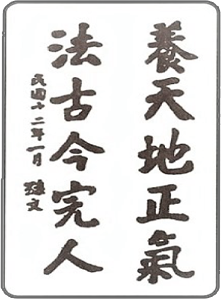 養天地正氣
法古今完人
民國十二年一月
孫文